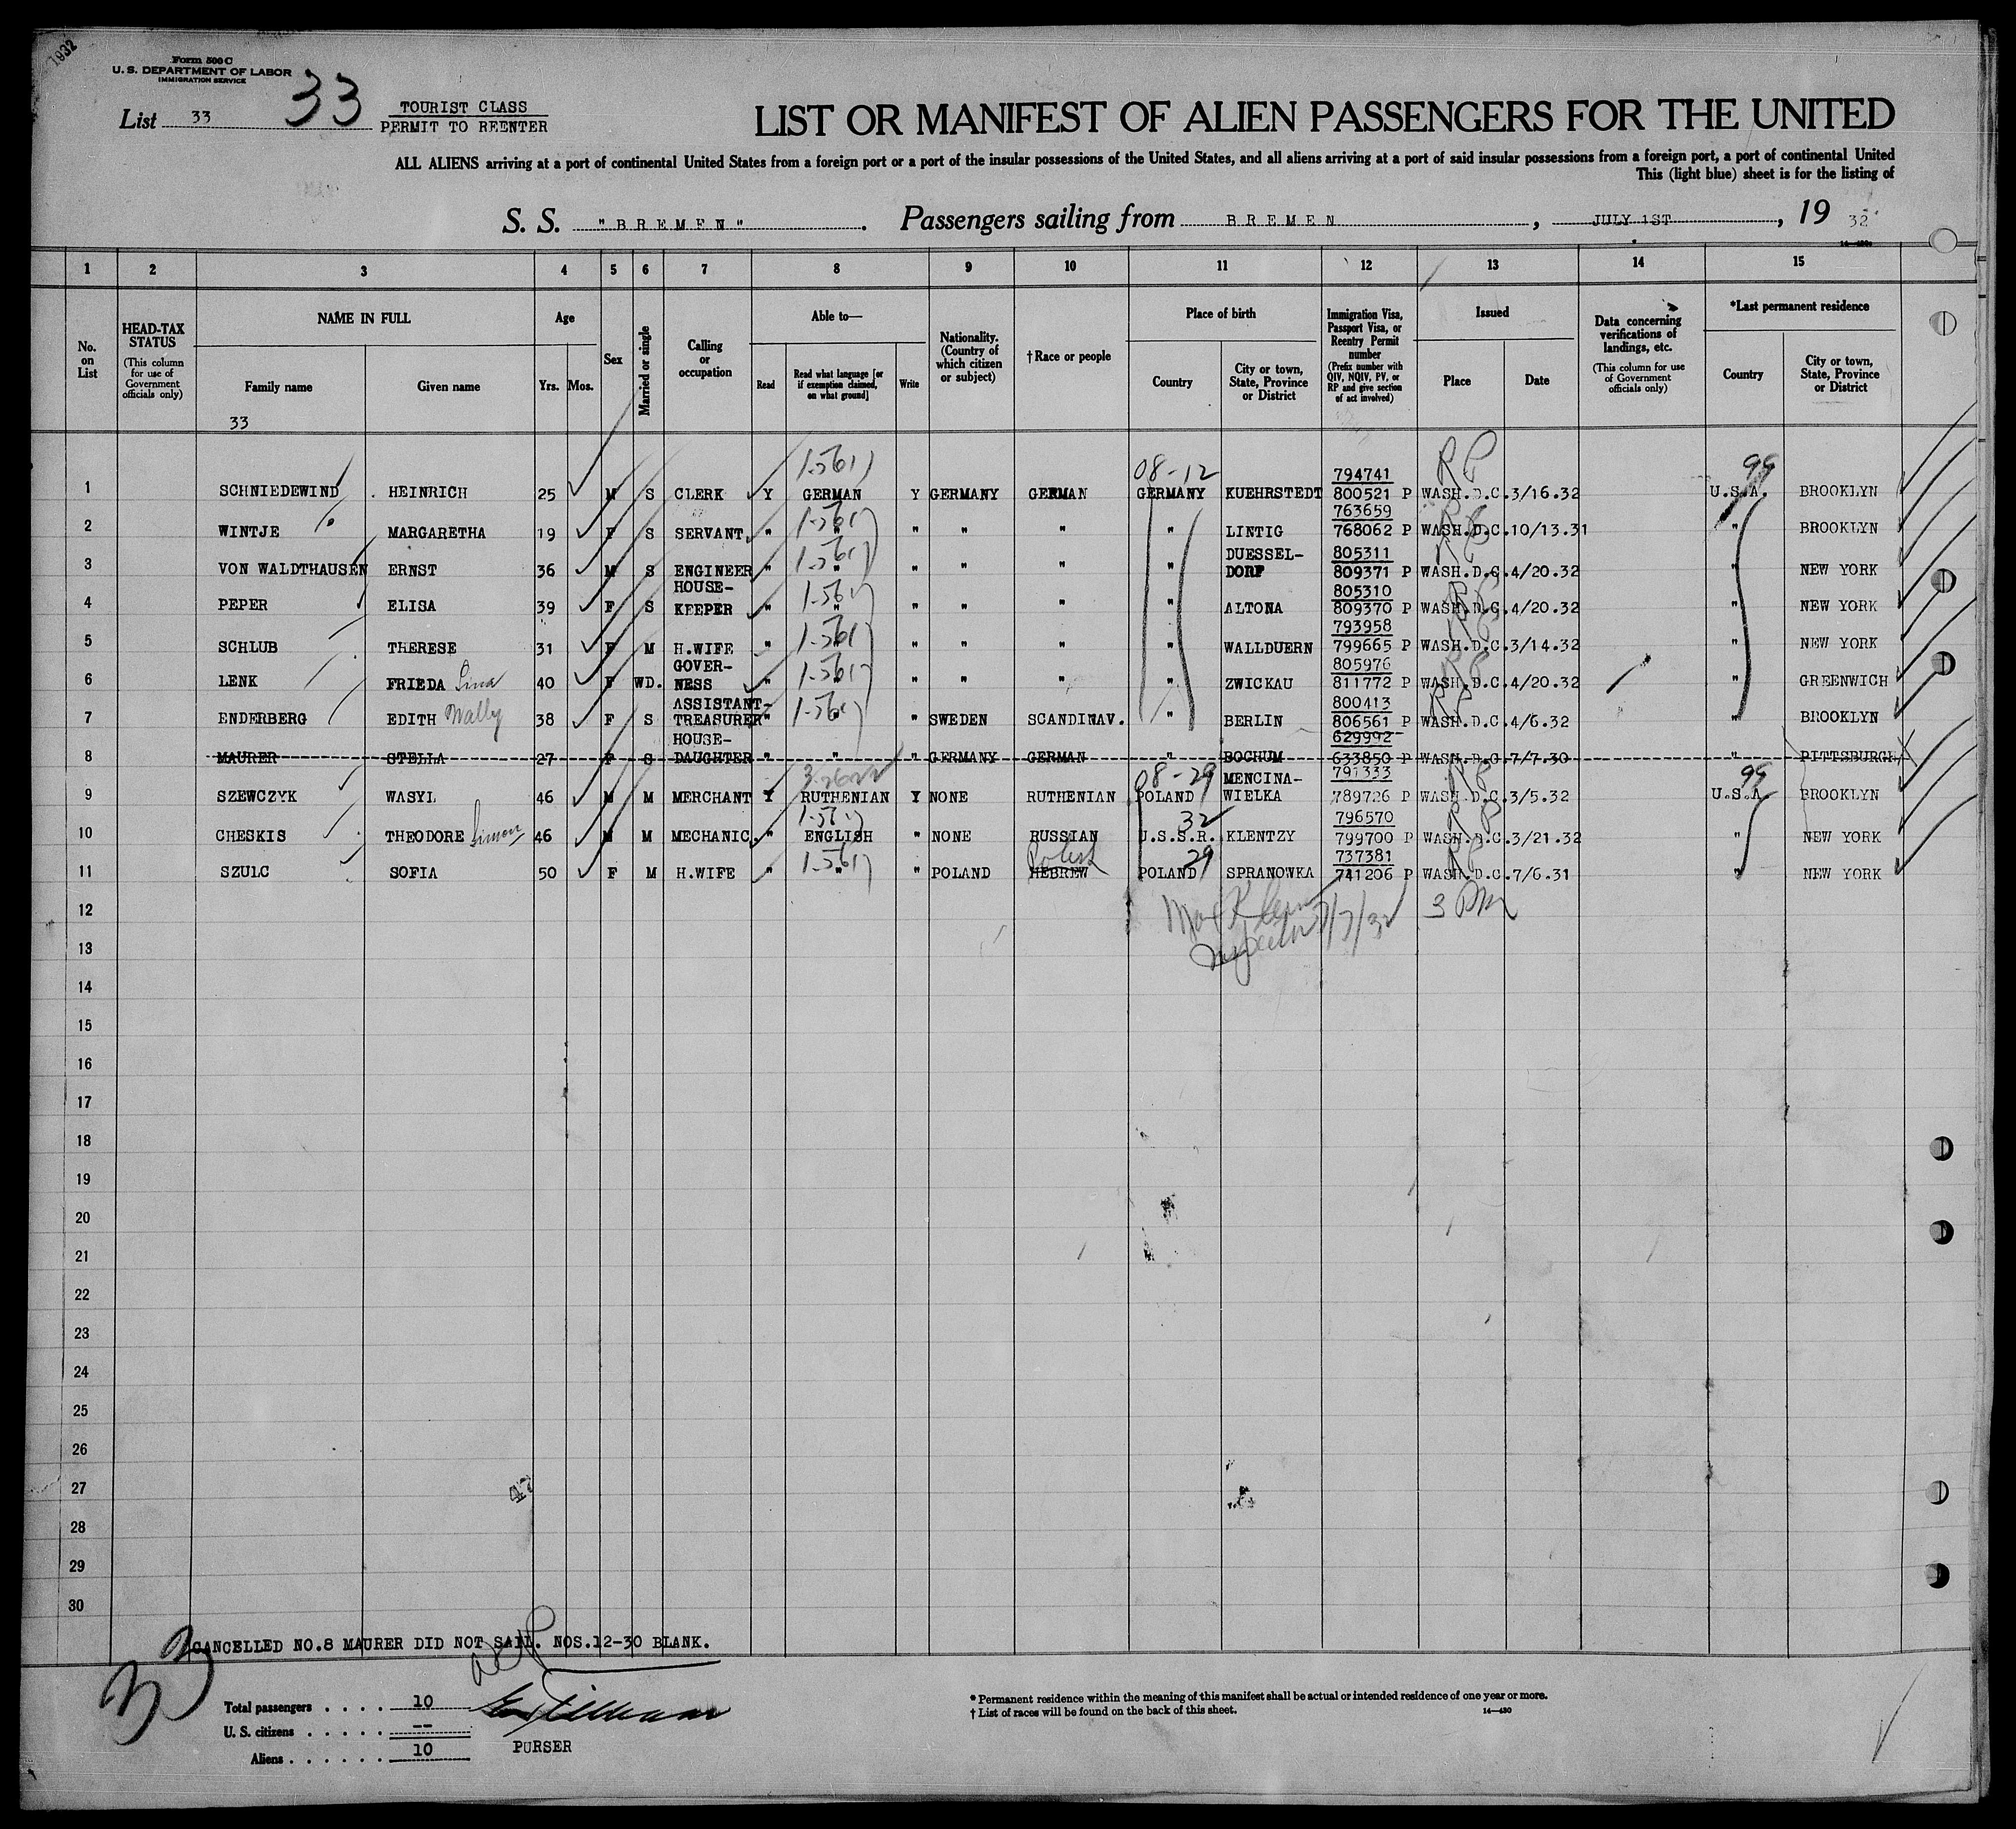 1932
Form 500 C
U. S. DEPARTMENT OF LABOR
IMMIGRATION SERVICE
List 33 33 TOURIST CLASS
PERMIT TO REENTER
LIST OR MANIFEST OF ALIEN PASSENGERS FOR THE UNITED
ALL ALIENS arriving at a port of continental United States from a foreign port or a port of the insular possessions of the United States, and all aliens arriving at a port of said insular possessions from a foreign port, a port of continental United
This (light blue) sheet is for the listing of
S. S. "BREMEN". Passengers sailing from BREMEN, JULY 1ST, 19 32
14—430
1 2 3 4 5 6 7 8 9 10 11 12 13 14 15
No. on List
HEAD-TAX STATUS (This column for use of Government officials only)
NAME IN FULL Family name Given name
Age Yrs. Mos.
Sex
Married or single
Calling or occupation
Able to— Read Read what language [or if exemption claimed, on what ground] Write
Nationality. (Country of which citizen or subject)
†Race or people
Place of birth Country City or town, State, Province or District
Immigration Visa, Passport Visa, or Reentry Permit number (Prefix number with QIV, NQIV, PV, or RP and give section of act involved)
Issued Place Date
Data concerning verifications of landings, etc. (This column for use of Government officials only)
*Last permanent residence Country City or town, State, Province or District
33
08-12 794741 RP 99
1 SCHNIEDEWIND HEINRICH 25 M S CLERK Y GERMAN Y GERMANY GERMAN GERMANY KUEHRSTEDT 800521 P WASH.D.C. 3/16.32 U.S.A. BROOKLYN
763659
2 WINTJE MARGARETHA 19 F S SERVANT " " " " " " LINTIG 768062 P WASH.D.C. 10/13.31 " BROOKLYN
DUESSEL- 805311
3 VON WALDTHAUSEN ERNST 36 M S ENGINEER " " " " " " DORF 809371 P WASH.D.C. 4/20.32 " NEW YORK
HOUSE- 805310
4 PEPER ELISA 39 F S KEEPER " " " " " " ALTONA 809370 P WASH.D.C. 4/20.32 " NEW YORK
793958
5 SCHLUB THERESE 31 F M H.WIFE " " " " " " WALLDUERN 799665 P WASH.D.C. 3/14.32 " NEW YORK
GOVER- 805976
6 LENK FRIEDA Lina 40 F WD. NESS " " " " " " ZWICKAU 811772 P WASH.D.C. 4/20.32 " GREENWICH
ASSISTANT- 800413
7 ENDERBERG EDITH Wally 38 F S TREASURER " " " SWEDEN SCANDINAV. " BERLIN 806561 P WASH.D.C. 4/6.32 " BROOKLYN
HOUSE- 629992
8 MAURER STELLA 27 F S DAUGHTER " " " GERMANY GERMAN " BOCHUM 633850 P WASH.D.C. 7/7.30 " PITTSBURGH
08-29 MENCINA- 791333 99
9 SZEWCZYK WASYL 46 M M MERCHANT Y RUTHENIAN Y NONE RUTHENIAN POLAND WIELKA 789726 P WASH.D.C. 3/5.32 U.S.A. BROOKLYN
32 796570
10 CHESKIS THEODORE Simon 46 M M MECHANIC. " ENGLISH " NONE RUSSIAN U.S.S.R. KLENTZY 799700 P WASH.D.C. 3/21.32 " NEW YORK
Polish 29 737381
11 SZULC SOFIA 50 F M H.WIFE " " " POLAND HEBREW POLAND SPRANOWKA 741206 P WASH.D.C. 7/6.31 " NEW YORK
12
Inspector 7/7/32
13
14
15
16
17
18
19
20
21
22
23
24
25
26
27
47
28
29
30
CANCELLED NO.8 MAURER DID NOT SAIL. NOS.12-30 BLANK.
33
Total passengers . . . . 10
U. S. citizens . . . . . --
Aliens . . . . . . 10
PURSER
* Permanent residence within the meaning of this manifest shall be actual or intended residence of one year or more.
† List of races will be found on the back of this sheet. 14—430